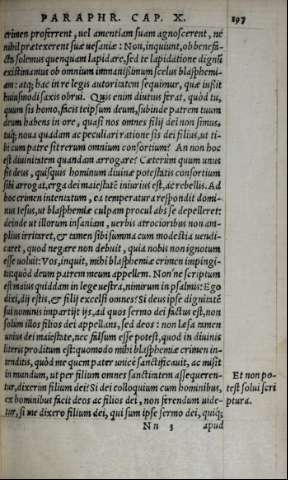 PARAPHR. CAP. X. 197
crimen proferrent, uel amentiam suam agnoscerent, ne
nihil prætexerent suæ uesaniæ: Non, inquiunt, ob benefa-
cta solemus quenquam lapidare, sed te lapidatione dignū
existimamus ob omnium immanissimum scelus blasphemi-
am: atq; hac in re legis autoritatem sequimur, quæ iussit
huiusmodi saxis obrui. Quis enim diutius ferat, quòd tu,
quum sis homo, facis teipsum deum, subinde patrem tuum
deum habens in ore, quasi nos omnes filij dei non simus,
tuq; noua quadam ac peculiari ratione sis dei filius, ut ti-
bi cum patre sit rerum omnium consortium? An non hoc
est diuinitatem quandam arrogare? Cæterùm quum unus
sit deus, quisquis hominum diuinæ potestatis consortium
sibi arrogat, erga dei maiestatē iniurius est, ac rebellis. Ad
hoc crimen intentatum, ea temperatura respondit domi-
nus Iesus, ut blasphemiæ culpam procul abs se depelleret:
deinde ut illorum insaniam, uerbis atrocioribus non am-
plius irritaret, & tamen sibi summa cum modestia uendi-
caret, quod negare non debuit, quia nobis non ignotum
esse uoluit: Vos, inquit, mihi blasphemiæ crimen impingi-
tis: quòd deum patrem meum appellem. Non'ne scriptum
est maius quiddam in lege uestra, nimirum in psalmis: Ego
dixi, dij estis, & filij excelsi omnes? Si deus ipse dignitatē
sui nominis impartijt ijs, ad quos sermo dei factus est, non
solum illos filios dei appellans, sed deos: non læsa tamen
unius dei maiestate, nec falsum esse potest, quod in diuinis
literis proditum est: quomodo mihi blasphemiæ crimen in-
tenditis, quòd me quem pater unicè sanctificauit, ac misit
in mundum, ut per filium omnes sanctitatem assequeren-
tur, dixerim filium dei? Si dei colloquium cum hominibus,
ex hominibus facit deos ac filios dei, non ferendum uide-
tur, si me dixero filium dei, qui sum ipse sermo dei, quiq;
Et non po-
test solui scri
ptura.
Nn 3 apud